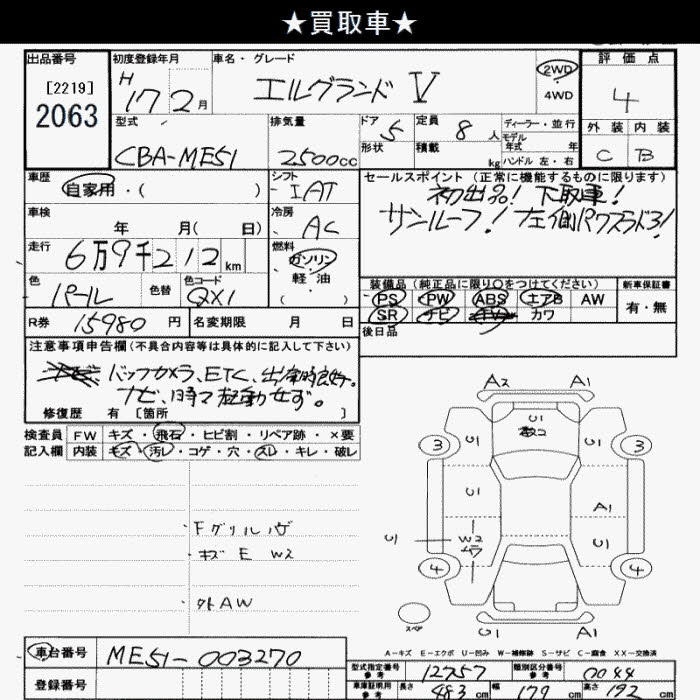 ★買取車★
出品番号
[2219]
2063
初度登録年月
H 17 2月
車名・グレード
エルグランド V
2WD
4WD
評価点
4
型式
CBA-ME51
排気量
2500cc
ドア 5
形状
定員 8人
積載 kg
ディーラー・並行
モデル
年式 年
ハンドル 左・右
外装 内装
C B
車歴
自家用・( )
シフト
IAT
セールスポイント(正常に機能するものに限ります)
初出品! 下取車!
サンルーフ! 左側パワスラドア!
車検
年 月( 日)
冷房
AC
走行
6万9千212km
燃料
ガソリン
軽油
・( )
色
パール
色替
色コード
QX1
装備品(純正品に限り○をつけてください)
PS PW ABS エアB AW
SR ナビ TV カワ
新車保証書
有・無
R券 15980円
名変期限 月 日
後日品
注意事項申告欄(不具合内容等は具体的に記入して下さい)
バックカメラ、ETC、出庫時良好。
ナビ、時々起動せず。
修復歴 有 [箇所 ]
検査員
記入欄
FW キズ・飛石・ヒビ割・リペア跡・×要
内装 キズ・汚レ・コゲ・穴・スレ・キレ・破レ
・Fグリル
・キズ E W2
・外AW
A2 A1
U1
3 U1 U1 3
U1 A1
U1 W2 U1
4 4
スペア
U1 A1
A-キズ E-エクボ U-凹み W-補修跡 S-サビ C-腐食 XX-交換済
車台番号 ME51-003270
登録番号
型式指定番号
参考
12757
類別区分番号
参考
0044
車庫証明用
参考
長さ 483cm 幅 179cm 高さ 192cm